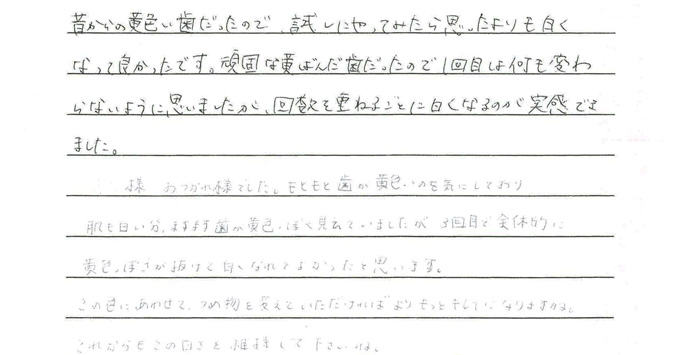 昔からの黄色い歯だったので、試しにやってみたら思ったよりも白く
なって良かったです。頑固な黄ばんだ歯だったので1回目は何も変わ
らないように思いましたが、回数を重ねるごとに白くなるのが実感でき
ました。
様 おつかれ様でした。もともと歯が黄色いのを気にしており
肌も白い分、ますます歯が黄色っぽく見えていましたが 3回目で全体的に
黄色っぽさが抜けて白くなれてよかったと思います。
この色にあわせて、つめ物を変えていただければよりもっとキレイになりますかね。
これからもこの白さを維持して下さいね。